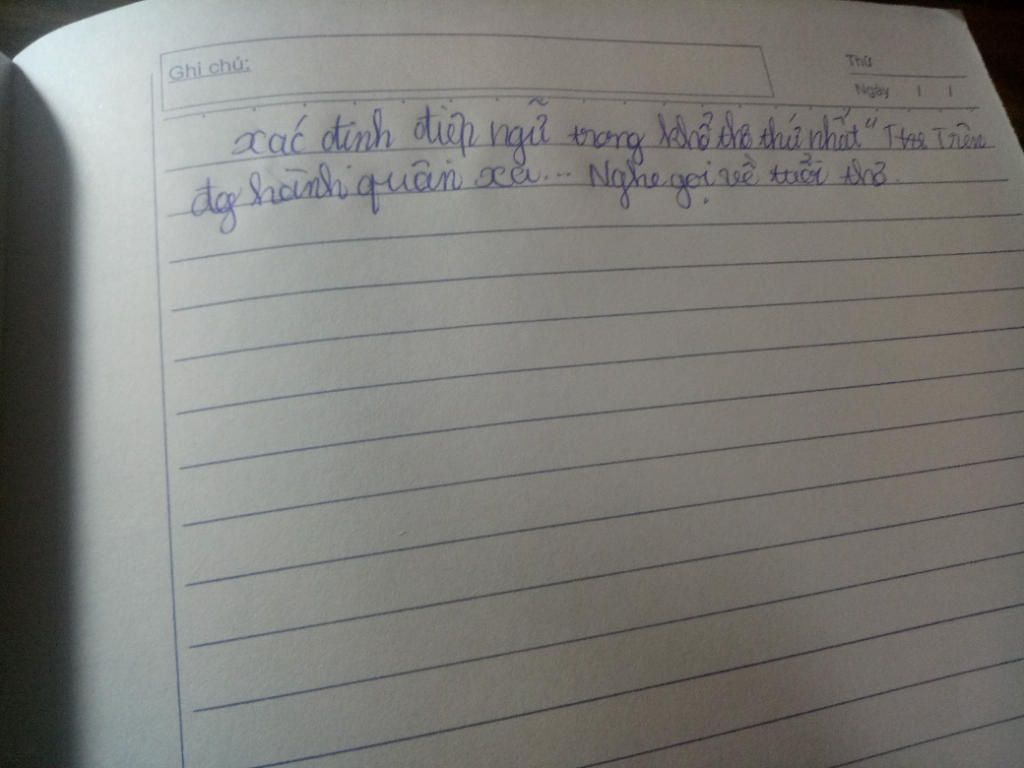 Ghi chú:
Thứ
Ngày / /
xác định điệp ngữ trong khổ thơ thứ nhất " Trên
đg hành quân xa... Nghe gọi về tuổi thơ.